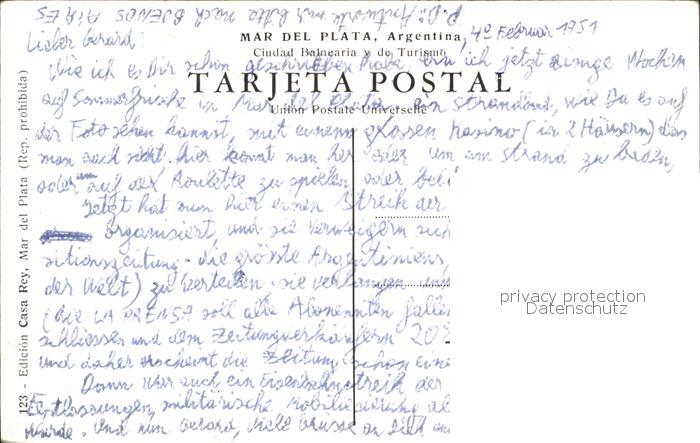 P.D.: Antworte mir bitte nach BUENOS AIRES
MAR DEL PLATA, Argentina, 4º Februar 1951
Ciudad Balnearia y de Turismo
Lieber Gerard:
Wie ich es Dir schon geschrieben habe, bin ich jetzt einige Wochen
TARJETA POSTAL
auf Sommerfrische in Mar del Plata, ein Strandbad, wie Du es auf
Union Postale Universelle
der Foto sehen kannst, mit einem grossen Kasino (in 2 Häusern) das
man auch sieht. Hier kommt man her oder um am Strand zu baden,
oder um auf der Roulette zu spielen oder bei
Jetzt hat man hier einen Streik der
organisiert, und sie verweigern sich
sitionszeitung - die grösste Argentiniens,
der Welt) zu verteilen. sie verlangen
(die LA PRENSA soll alle Abonennten
schliessen und dem Zeitungverkäufern 20%
und daher erscheint die Zeitung schon eine
Dann war auch ein Eisenbahnstreik der
Entlassungen, militärische Mobilisierung
Und nun Gerard, viele Grüsse an Dich
123 - Edición Casa Rey, Mar del Plata (Rep. prohibida)
privacy protection
Datenschutz